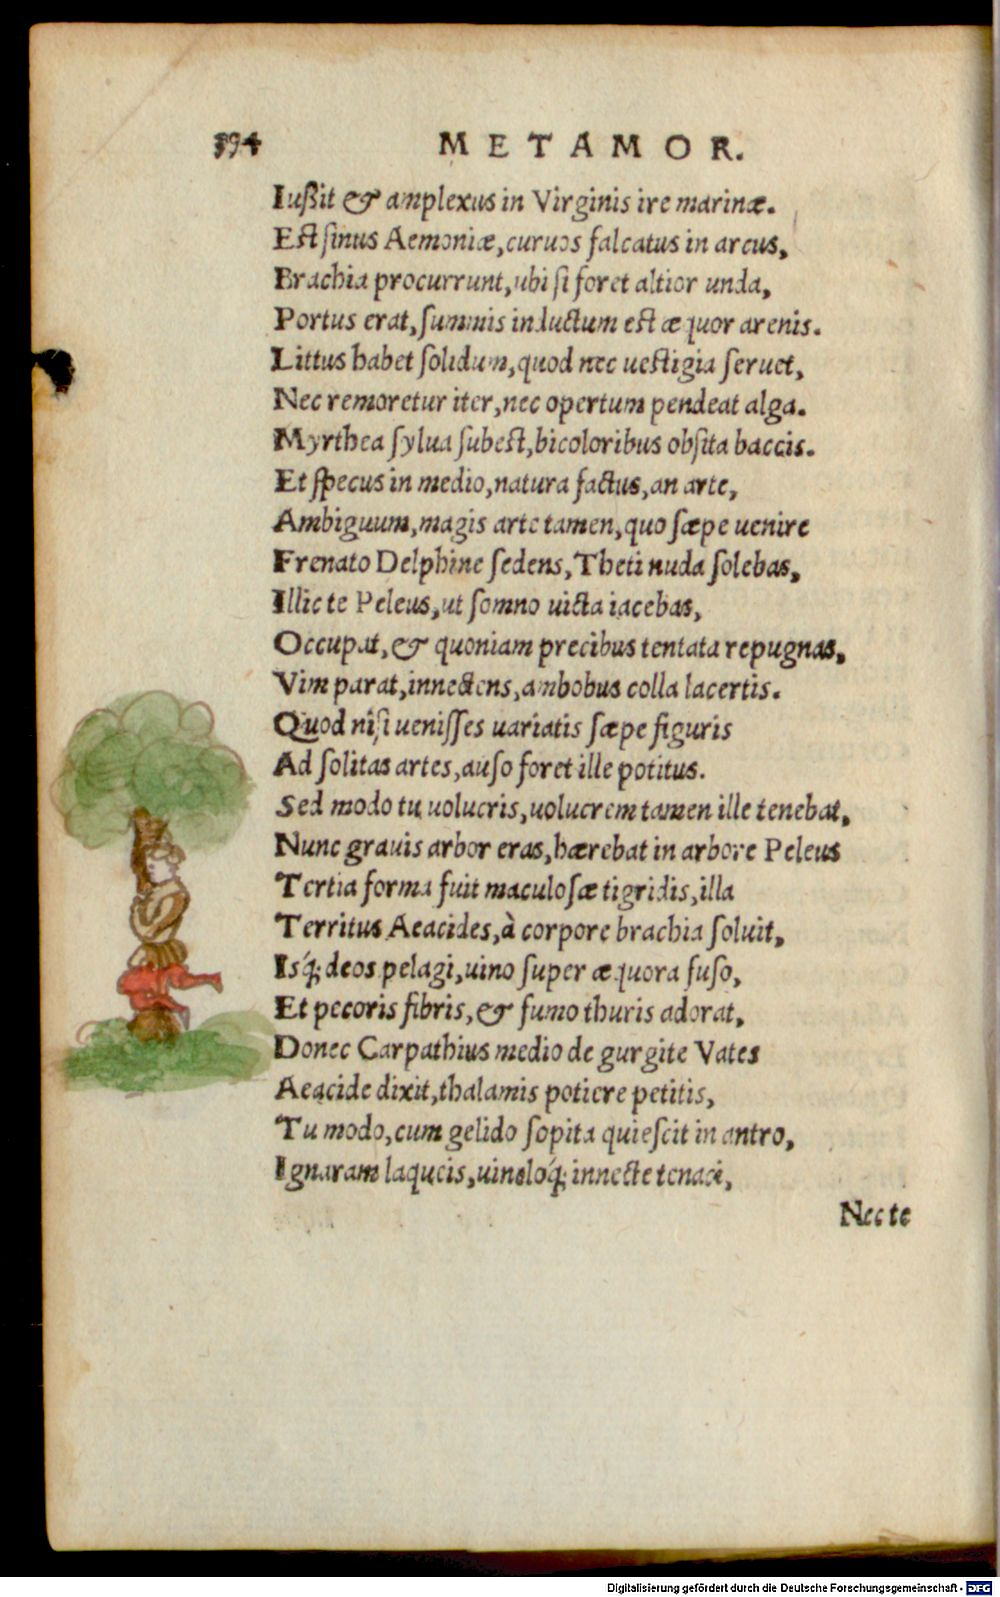 394 METAMOR.
Iußit & amplexus in Virginis ire marinæ.
Est sinus Aemoniæ, curuos falcatus in arcus,
Brachia procurrunt, ubi si foret altior unda,
Portus erat, summis inductum est æquor arenis.
Littus habet solidum, quod nec uestigia seruet,
Nec remoretur iter, nec opertum pendeat alga.
Myrthea sylua subest, bicoloribus obsita baccis.
Et specus in medio, natura factus, an arte,
Ambiguum, magis arte tamen, quo sæpe uenire
Frenato Delphine sedens, Theti nuda solebas,
Illic te Peleus, ut somno uicta iacebas,
Occupat, & quoniam precibus tentata repugnas,
Vim parat, innectens, ambobus colla lacertis.
Quod nisi uenisses uariatis sæpe figuris
Ad solitas artes, auso foret ille potitus.
Sed modo tu uolucris, uolucrem tamen ille tenebat,
Nunc grauis arbor eras, hærebat in arbore Peleus
Tertia forma fuit maculosæ tigridis, illa
Territus Aeacides, à corpore brachia soluit,
Isq́; deos pelagi, uino super æquora fuso,
Et pecoris fibris, & fumo thuris adorat,
Donec Carpathius medio de gurgite Vates
Aeacide dixit, thalamis potiere petitis,
Tu modo, cum gelido sopita quiescit in antro,
Ignaram laqueis, uincloq́; innecte tenaci,
Nec te
Digitalisierung gefördert durch die Deutsche Forschungsgemeinschaft - DFG